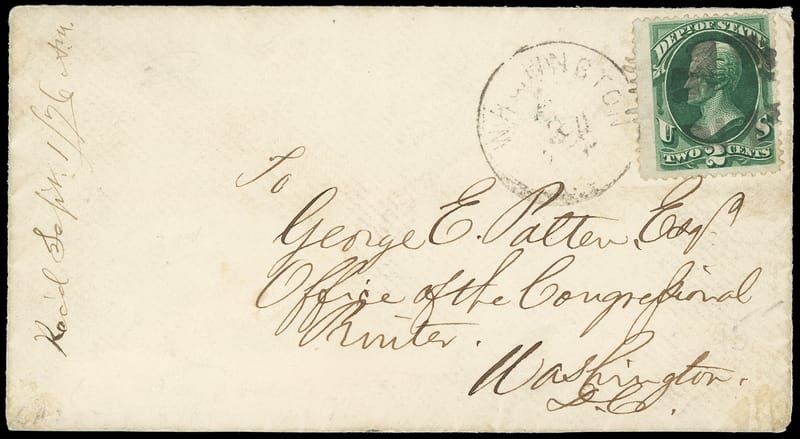 DEPT. OF STATE
U S
TWO 2 CENTS
WASHINGTON
To
George E. Patten, Esqr.
Office of the Congressional
Printer.
Washington.
D.C.
Rec'd Sept. 1/76 Am.